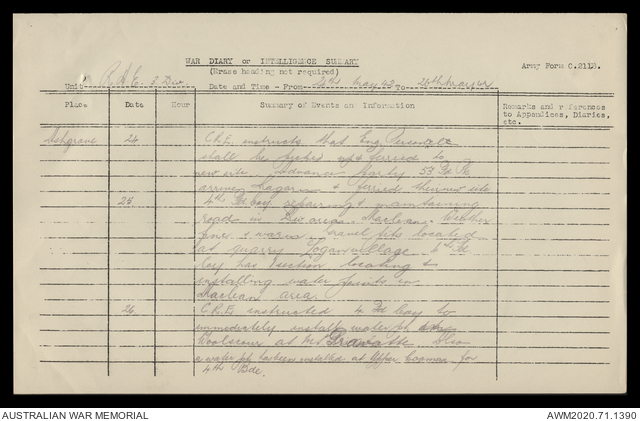 WAR DIARY or INTELLIGENCE SUMMARY
(Erase heading not required)
Army Form C.2118.
Unit R.A.E. 3 Div. Date and Time - From 24th May 42 To 26th May 42
Place Date Hour Summary of Events and Information Remarks and references to Appendices, Diaries, etc.
Ashgrove 24 C.R.E. instructs that Eng. Personnel
shall be picked up & ferried to
new site. Advance party 53 Fd Pk
arrive & ferried their new site
25 4th Fd Coy repairing & maintaining
road in Div area, Maclean. Weather
fine & warm. Gravel pits located
at quarry Loganvillage. Fd
Coy has section locating &
installing water points in
Maclean area.
26. C.R.E. instructed 4 Fd Coy to
immediately install water pt
Woolscour at Mt. Also
a water pt has been installed at Upper Coomera for
4th Bde.
AUSTRALIAN WAR MEMORIAL
AWM2020.71.1390